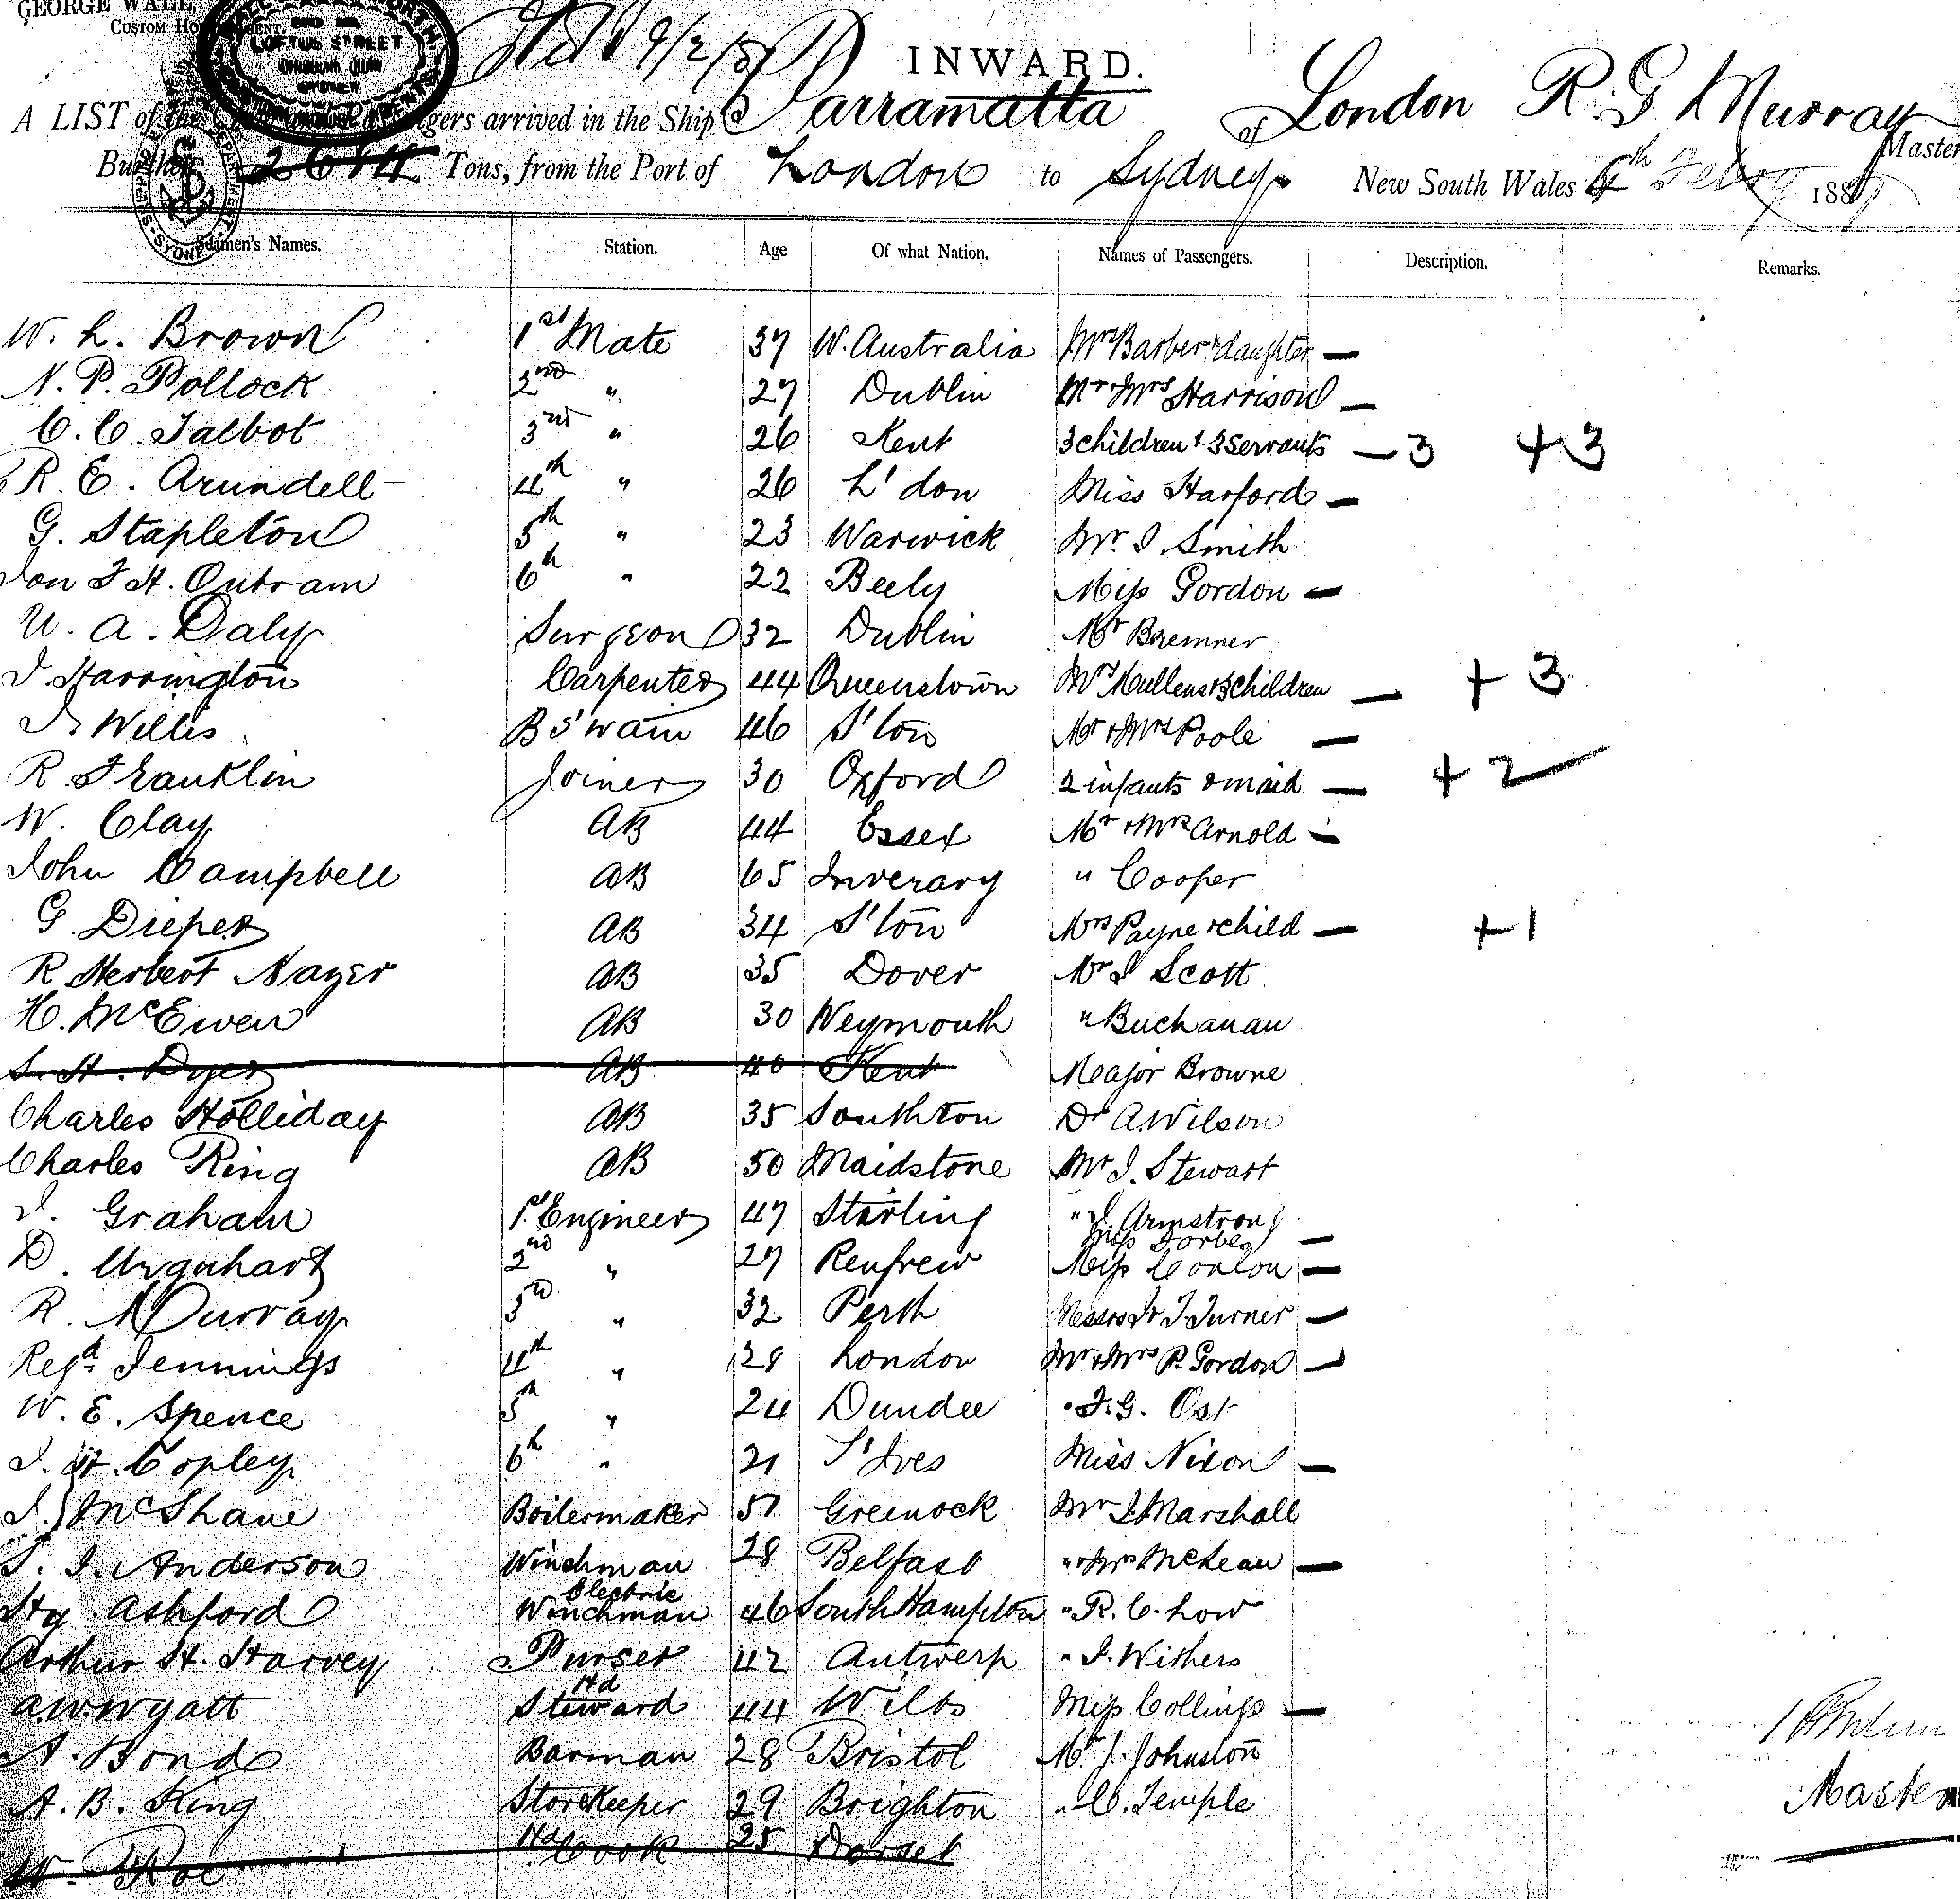 GEORGE WALL
CUSTOM HOUSE AGENT
LOFTUS STREET
SYDNEY
INWARD.
A LIST of the gers arrived in the Ship Parramatta of London R. G Murray Master
Burthen 2614 Tons, from the Port of London to Sydney New South Wales 4th Feby 188
Seamen's Names. Station. Age Of what Nation. Names of Passengers. Description. Remarks.
W. L. Brown 1st Mate 37 W. Australia Mrs Barber & daughter —
N. P. Pollock 2nd " 27 Dublin Mr & Mrs Harrison —
C. C. Talbot 3rd " 26 Kent 3 children & 3 servants — 3 + 3
R. E. Arundell 4th " 26 L'don Miss Harford —
G. Stapleton 5th " 23 Warwick Mr. J. Smith
F H. Outram 6th " 22 Beely Miss Gordon —
W. A. Daly Surgeon 32 Dublin Mr Bremner
J Harrington Carpenter 44 Queenstown Mrs Mullens & 3 children — + 3
J. Willis B S'wain 46 S'ton Mr & Mrs Poole —
R. Franklin Joiner 30 Oxford 2 infants & maid — + 2
W. Clay AB 44 Essex Mr & Mrs Arnold —
John Campbell AB 65 Inverary " Cooper
G. Dieper AB 34 S'ton Mrs Payne & child — + 1
R Herbert Nayer AB 35 Dover Mr J Scott
H. McEwen AB 30 Weymouth " Buchanan
S. H. Dyer AB 40 Kent Major Browne
Charles Holliday AB 35 Southton Dr A Wilson
Charles Ring AB 50 Maidstone Mr J. Stewart
J. Graham 1st Engineer 47 Stirling " J. Armstrong
Miss Forbes —
D. Urquhart 2nd " 27 Renfrew Miss Conlon —
R. Murray 3rd " 32 Perth Messrs J & T Turner —
Regd Jennings 4th " 28 London Mr & Mrs P. Gordon —
W. E. Spence 5th " 24 Dundee " F. G. Ost
J. H. Copley 6th " 21 St Ives Miss Nixon —
J. McShane Boilermaker 51 Greenock Mr J Marshall
T. J. Anderson Winchman 28 Belfast " & Mrs McLean —
Hy. Ashford Electric Winchman 46 SouthHampton " R. C. Low
Arthur H. Harvey Purser 42 Antwerp " J. Withers
A.W. Wyatt Hd Steward 44 Wilts Miss Collings —
A. Bond Barman 28 Bristol Mr J. Johnston
A. B. King Storekeeper 29 Brighton " C. Temple
Master
W. Roe Hd Cook 25 Dorset